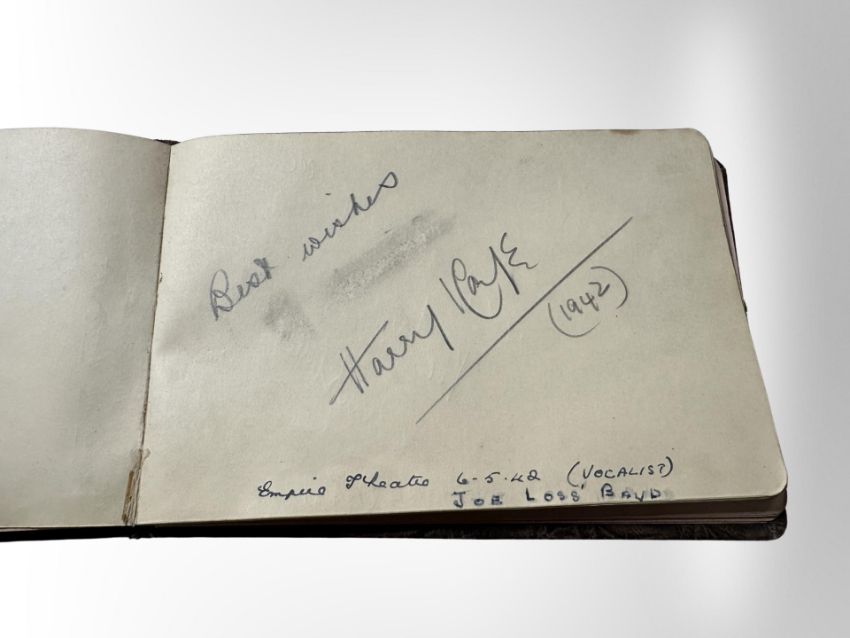 Best wishes
Harry Kaye
(1942)
Empire Theatre 6-5-42 (VOCALIST)
JOE LOSS' BAND